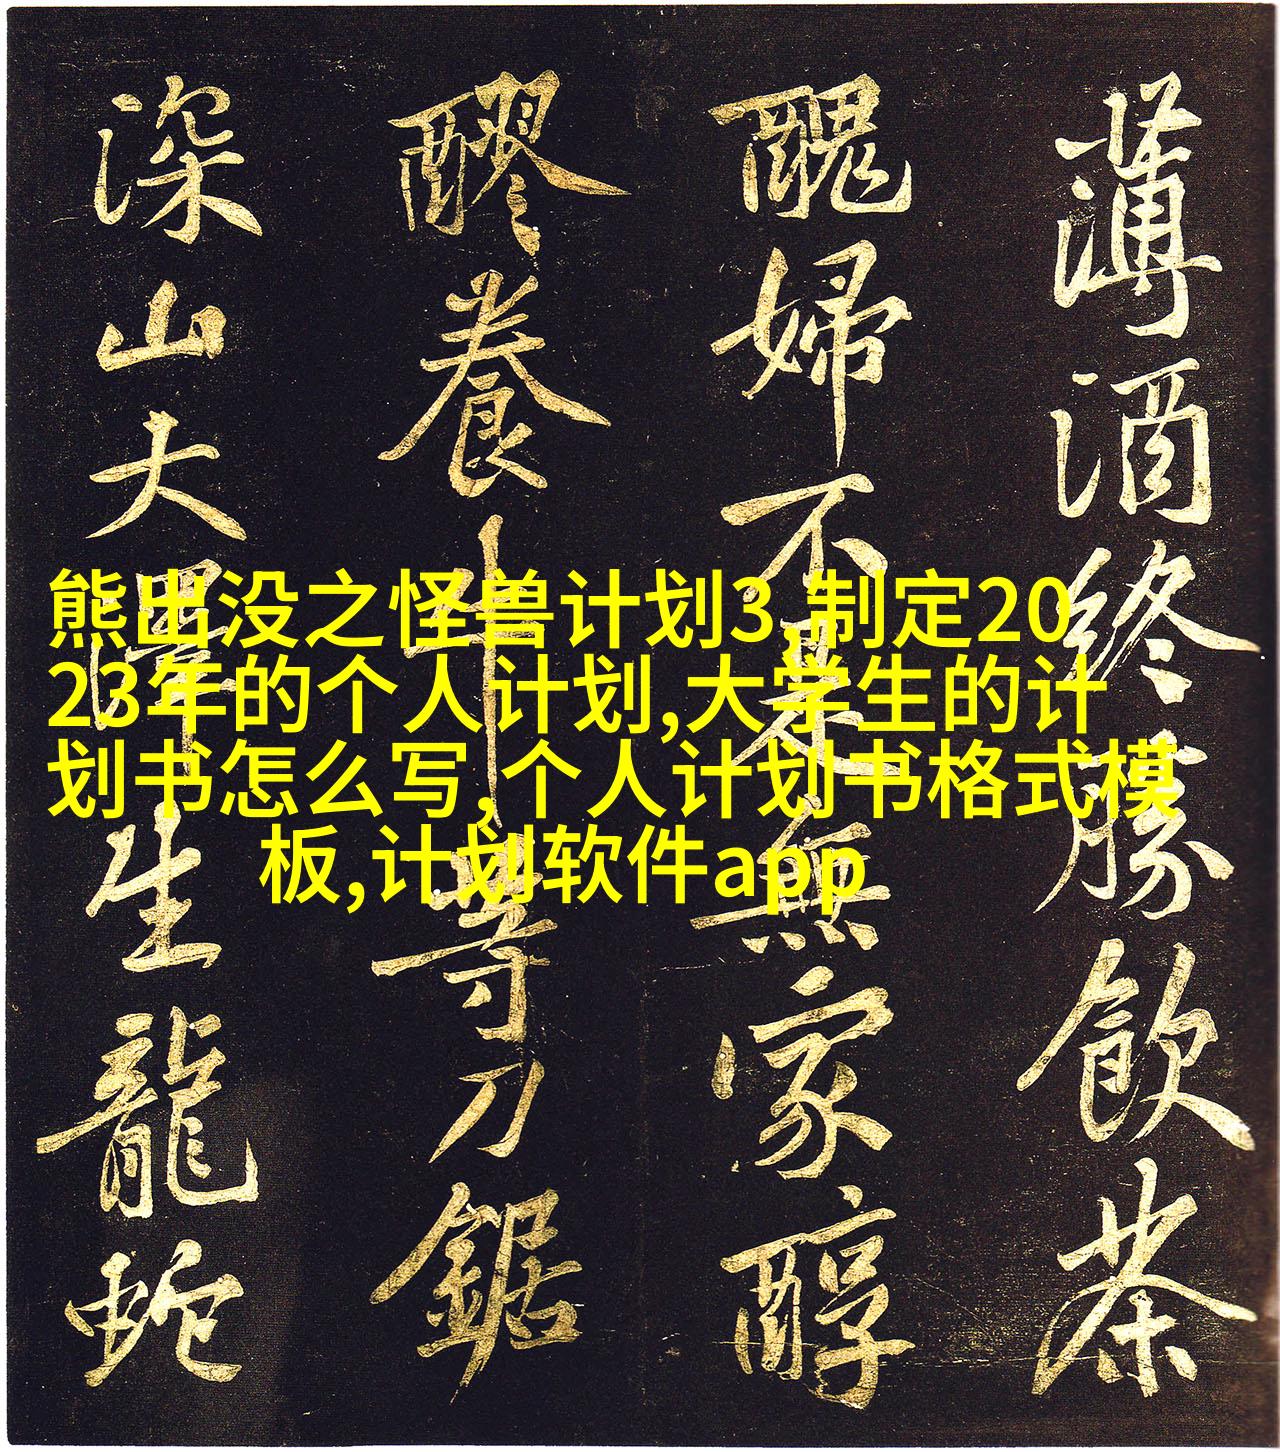 薄酒终勝飲茶
醜婦不是無家醇
醪養牛等刀鋸
深山大澤生龍蛇
熊出没之怪兽计划3,制定20
23年的个人计划,大学生的计
划书怎么写,个人计划书格式模
板,计划软件app